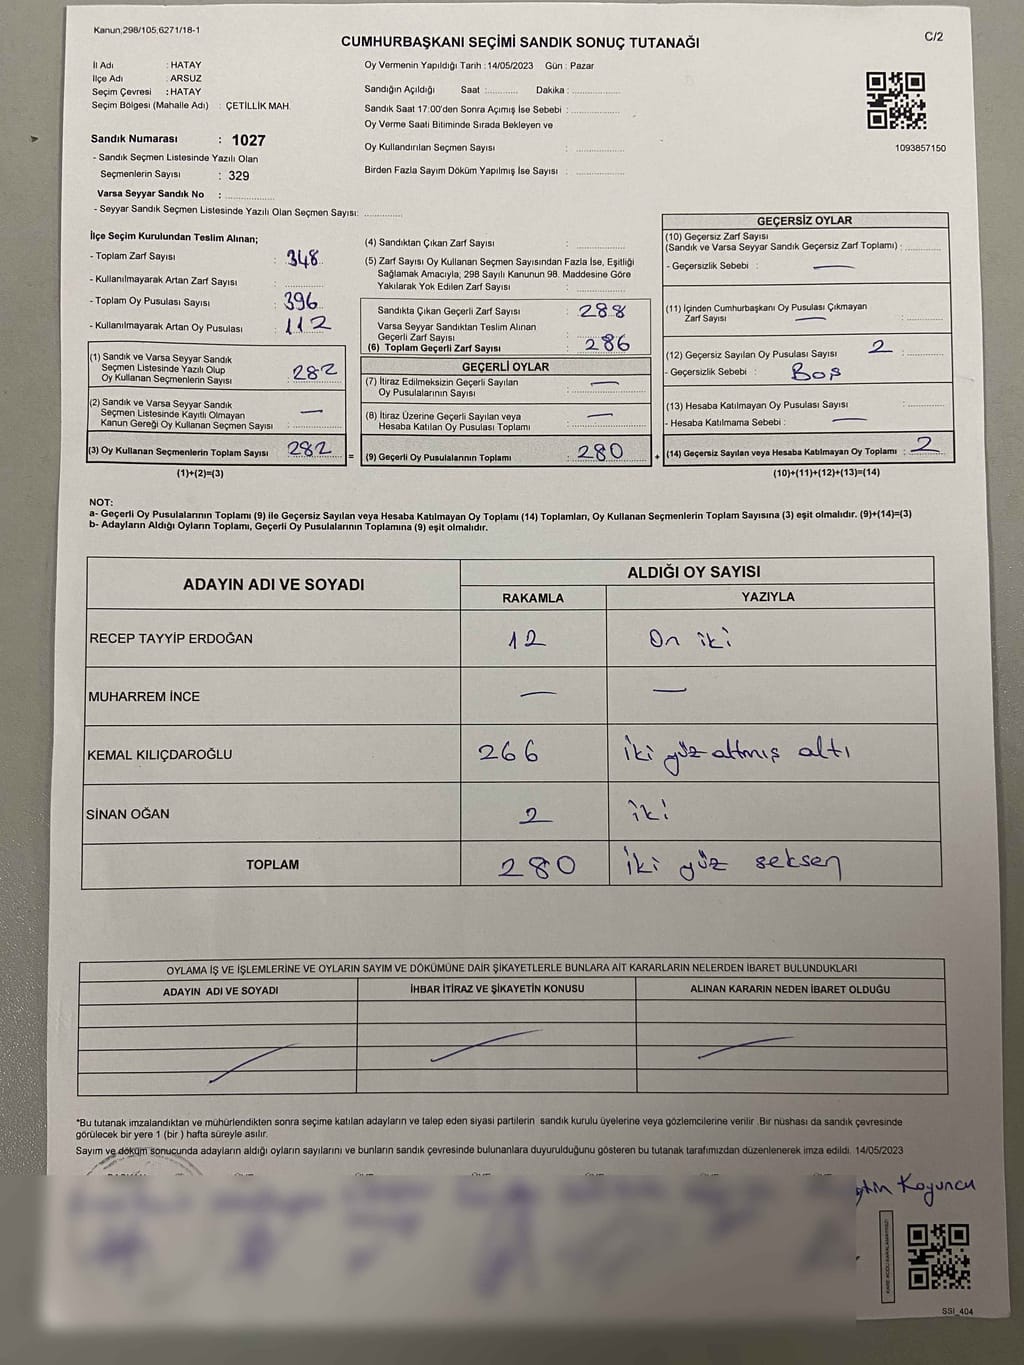 Kanun;298/105,6271/18-1
C/2
CUMHURBAŞKANI SEÇİMİ SANDIK SONUÇ TUTANAĞI
İl Adı : HATAY
İlçe Adı : ARSUZ
Seçim Çevresi : HATAY
Seçim Bölgesi (Mahalle Adı) : ÇETİLLİK MAH.
Sandık Numarası : 1027
- Sandık Seçmen Listesinde Yazılı Olan
Seçmenlerin Sayısı : 329
Varsa Seyyar Sandık No : ..............
- Seyyar Sandık Seçmen Listesinde Yazılı Olan Seçmen Sayısı: ............
Oy Vermenin Yapıldığı Tarih : 14/05/2023 Gün : Pazar
Sandığın Açıldığı Saat :.......... Dakika : ..............
Sandık Saat 17:00'den Sonra Açımış İse Sebebi : ..............
Oy Verme Saati Bitiminde Sırada Bekleyen ve
Oy Kullandırılan Seçmen Sayısı : ..............
Birden Fazla Sayım Döküm Yapılmış İse Sayısı : ..............
1093857150
İlçe Seçim Kurulundan Teslim Alınan;
- Toplam Zarf Sayısı : 348
- Kullanılmayarak Artan Zarf Sayısı : ..............
- Toplam Oy Pusulası Sayısı : 396
- Kullanılmayarak Artan Oy Pusulası : 112
(1) Sandık ve Varsa Seyyar Sandık
Seçmen Listesinde Yazılı Olup
Oy Kullanan Seçmenlerin Sayısı : 282
(2) Sandık ve Varsa Seyyar Sandık
Seçmen Listesinde Kayıtlı Olmayan
Kanun Gereği Oy Kullanan Seçmen Sayısı : —
(3) Oy Kullanan Seçmenlerin Toplam Sayısı 282 =
(1)+(2)=(3)
(4) Sandıktan Çıkan Zarf Sayısı : ..............
(5) Zarf Sayısı Oy Kullanan Seçmen Sayısından Fazla İse, Eşitliği
Sağlamak Amacıyla; 298 Sayılı Kanunun 98. Maddesine Göre
Yakılarak Yok Edilen Zarf Sayısı : ..............
Sandıkta Çıkan Geçerli Zarf Sayısı : 288
Varsa Seyyar Sandıktan Teslim Alınan
Geçerli Zarf Sayısı :
(6) Toplam Geçerli Zarf Sayısı : 286
GEÇERLİ OYLAR
(7) İtiraz Edilmeksizin Geçerli Sayılan
Oy Pusulalarının Sayısı : —
(8) İtiraz Üzerine Geçerli Sayılan veya
Hesaba Katılan Oy Pusulası Toplamı : —
(9) Geçerli Oy Pusulalarının Toplamı : 280 +
GEÇERSİZ OYLAR
(10) Geçersiz Zarf Sayısı
(Sandık ve Varsa Seyyar Sandık Geçersiz Zarf Toplamı) : ............
- Geçersizlik Sebebi : —
(11) İçinden Cumhurbaşkanı Oy Pusulası Çıkmayan
Zarf Sayısı — : ............
(12) Geçersiz Sayılan Oy Pusulası Sayısı 2 : ............
- Geçersizlik Sebebi : Boş
(13) Hesaba Katılmayan Oy Pusulası Sayısı : ............
- Hesaba Katılmama Sebebi : —
(14) Geçersiz Sayılan veya Hesaba Katılmayan Oy Toplamı : 2
(10)+(11)+(12)+(13)=(14)
NOT:
a- Geçerli Oy Pusulalarının Toplamı (9) ile Geçersiz Sayılan veya Hesaba Katılmayan Oy Toplamı (14) Toplamları, Oy Kullanan Seçmenlerin Toplam Sayısına (3) eşit olmalıdır. (9)+(14)=(3)
b- Adayların Aldığı Oyların Toplamı, Geçerli Oy Pusulalarının Toplamına (9) eşit olmalıdır.
ADAYIN ADI VE SOYADI ALDIĞI OY SAYISI
RAKAMLA YAZIYLA
RECEP TAYYİP ERDOĞAN 12 On iki
MUHARREM İNCE — —
KEMAL KILIÇDAROĞLU 266 iki yüz altmış altı
SİNAN OĞAN 2 iki
TOPLAM 280 iki yüz seksen
OYLAMA İŞ VE İŞLEMLERİNE VE OYLARIN SAYIM VE DÖKÜMÜNE DAİR ŞİKAYETLERLE BUNLARA AİT KARARLARIN NELERDEN İBARET BULUNDUKLARI
ADAYIN ADI VE SOYADI İHBAR İTİRAZ VE ŞİKAYETİN KONUSU ALINAN KARARIN NEDEN İBARET OLDUĞU
*Bu tutanak imzalandıktan ve mühürlendikten sonra seçime katılan adayların ve talep eden siyasi partilerin sandık kurulu üyelerine veya gözlemcilerine verilir .Bir nüshası da sandık çevresinde
görülecek bir yere 1 (bir ) hafta süreyle asılır.
Sayım ve döküm sonucunda adayların aldığı oyların sayılarını ve bunların sandık çevresinde bulunanlara duyurulduğunu gösteren bu tutanak tarafımızdan düzenlenerek imza edildi. 14/05/2023
Koyuncu
SSI_404